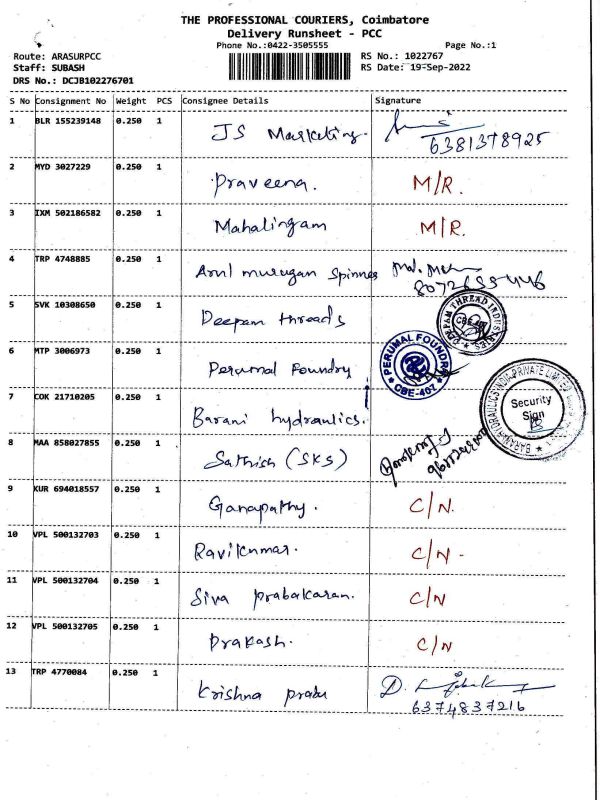 THE PROFESSIONAL COURIERS, Coimbatore
Delivery Runsheet - PCC
Phone No.:0422-3505555 Page No.:1
Route: ARASURPCC RS No.: 1022767
Staff: SUBASH RS Date: 19-Sep-2022
DRS No.: DCJB102276701
S No Consignment No Weight PCS Consignee Details Signature
1 BLR 155239148 0.250 1 JS Marketing. 6381378925
2 MYD 3027229 0.250 1 Praveena. M/R.
3 IXM 502186582 0.250 1 Mahalingam M/R.
4 TRP 4748885 0.250 1 Arul murugan spinnes
5 SVK 10308650 0.250 1 Deepam threads DEEPAM THREAD INDUSTRIES
6 MTP 3006973 0.250 1 Perumal Foundry PERUMAL FOUNDRY CBE-407
7 COK 21710205 0.250 1 Barani hydraulics. BARANI HYDRAULICS INDIA PRIVATE LIMITED Security Sign
8 MAA 858027855 0.250 1 Sathish (SKS)
9 KUR 694018557 0.250 1 Ganapathy. C/N.
10 VPL 500132703 0.250 1 Ravikumar. C/N -
11 VPL 500132704 0.250 1 Siva prabakaran. C/N
12 VPL 500132705 0.250 1 Prakash. C/N
13 TRP 4770084 0.250 1 Krishna prabu D. 6374837216